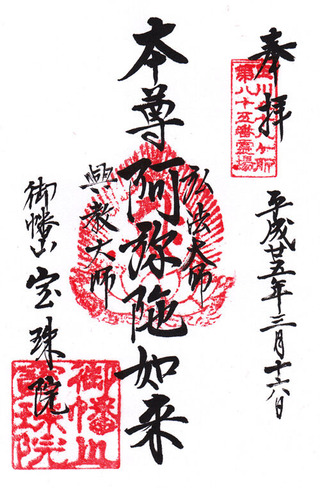 奉拝
第八十五番霊場
平成廿五年三月十六日
弘法大師
本尊阿弥陀如来
興教大師
御幡山宝珠院
御幡山
寳珠院